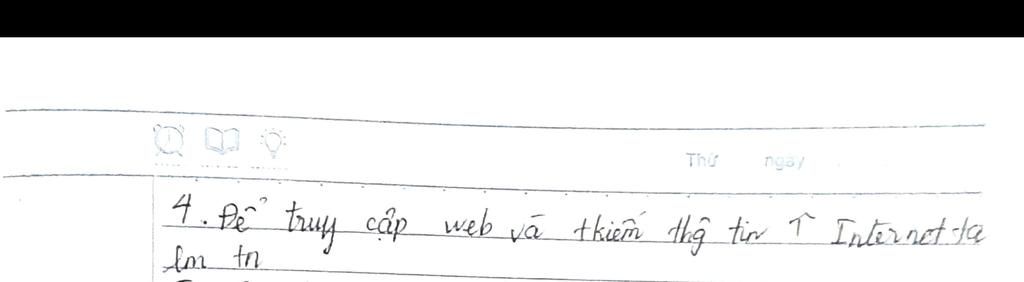 Thứ ngày
4. Để truy cập web và tkiếm thg tin ↑ Internet ta
lm tn